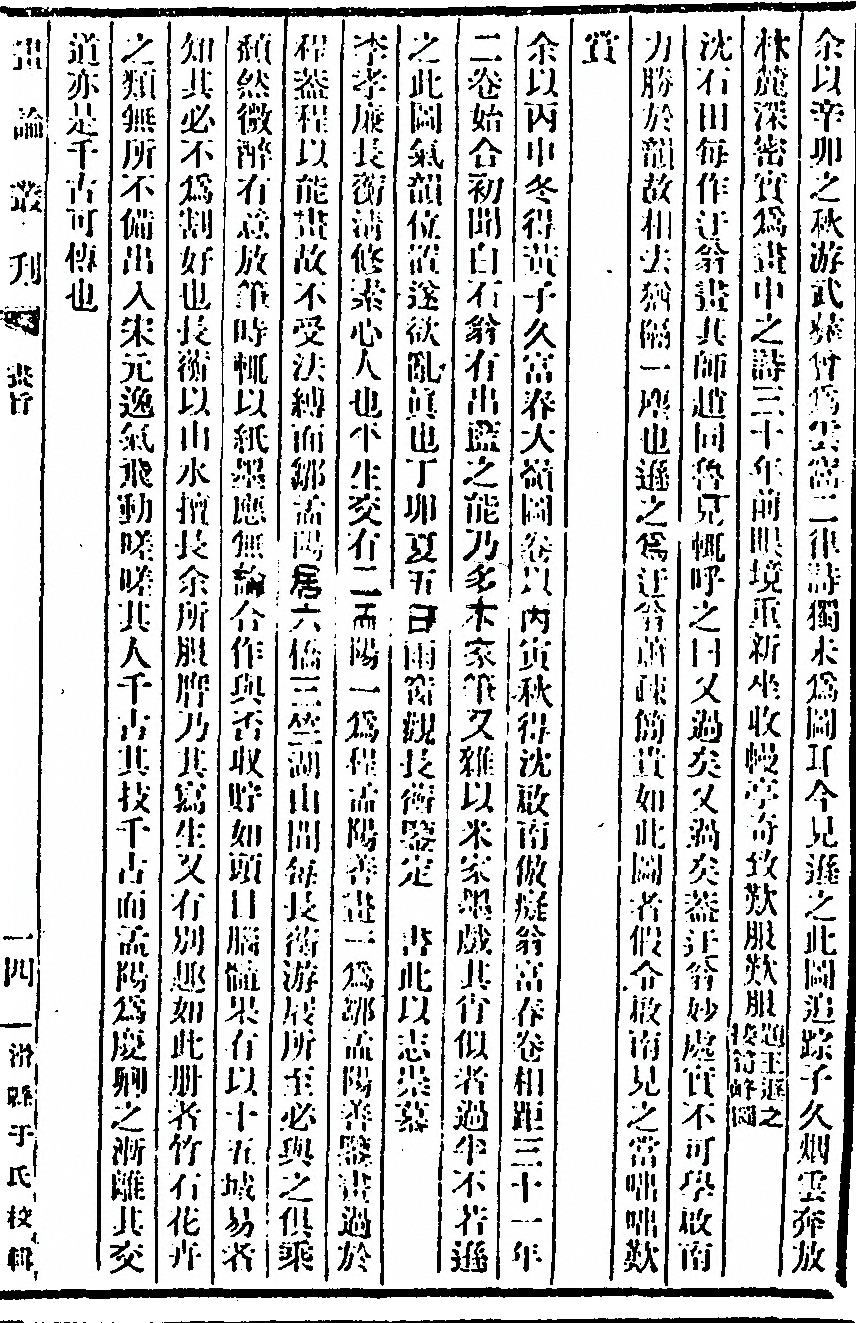 余以辛卯之秋游武彝曾爲雲窩二律詩獨未爲圖耳今見遜之此圖追踪子久烟雲奔放
林麓深密實爲畫中之詩三十年前眼境重新坐收幔亭奇致歎服歎服題王遜之接笋峰圖
沈石田每作迂翁畫其師趙同魯見輒呼之曰又過矣又過矣蓋迂翁妙處實不可學啟南
力勝於韻故相去猶隔一塵也遜之爲迂翁蕭疎簡貴如此圖者假令啟南見之當咄咄歎
賞
余以丙申冬得黃子久富春大嶺圖卷以丙寅秋得沈啟南倣癡翁富春卷相距三十一年
二卷始合初聞白石翁有出藍之能乃多本家筆又雜以米家墨戲其肖似者過半不若遜
之此圖氣韻位置遂欲亂眞也丁卯夏五日雨窗觀長衡鑒定　書此以志崇慕
李孝廉長衡淸修素心人也平生交有二孟陽一爲程孟陽善畫一爲鄒孟陽善鑒畫過於
程蓋程以能畫故不受法縛而鄒孟陽居六橋三竺湖山間每長衡游屐所至必與之俱乘
頹然微醉有意放筆時輒以紙墨應無論合作與否收貯如頭目腦髓果有以十五城易者
知其必不爲割好也長衡以山水擅長余所服膺乃其寫生又有別趣如此册者竹石花卉
之類無所不備出入宋元逸氣飛動嗟嗟其人千古其技千古而孟陽爲慶卿之漸離其交
道亦是千古可傳也
畫論叢刊　畫旨　一四　滑縣于氏校輯